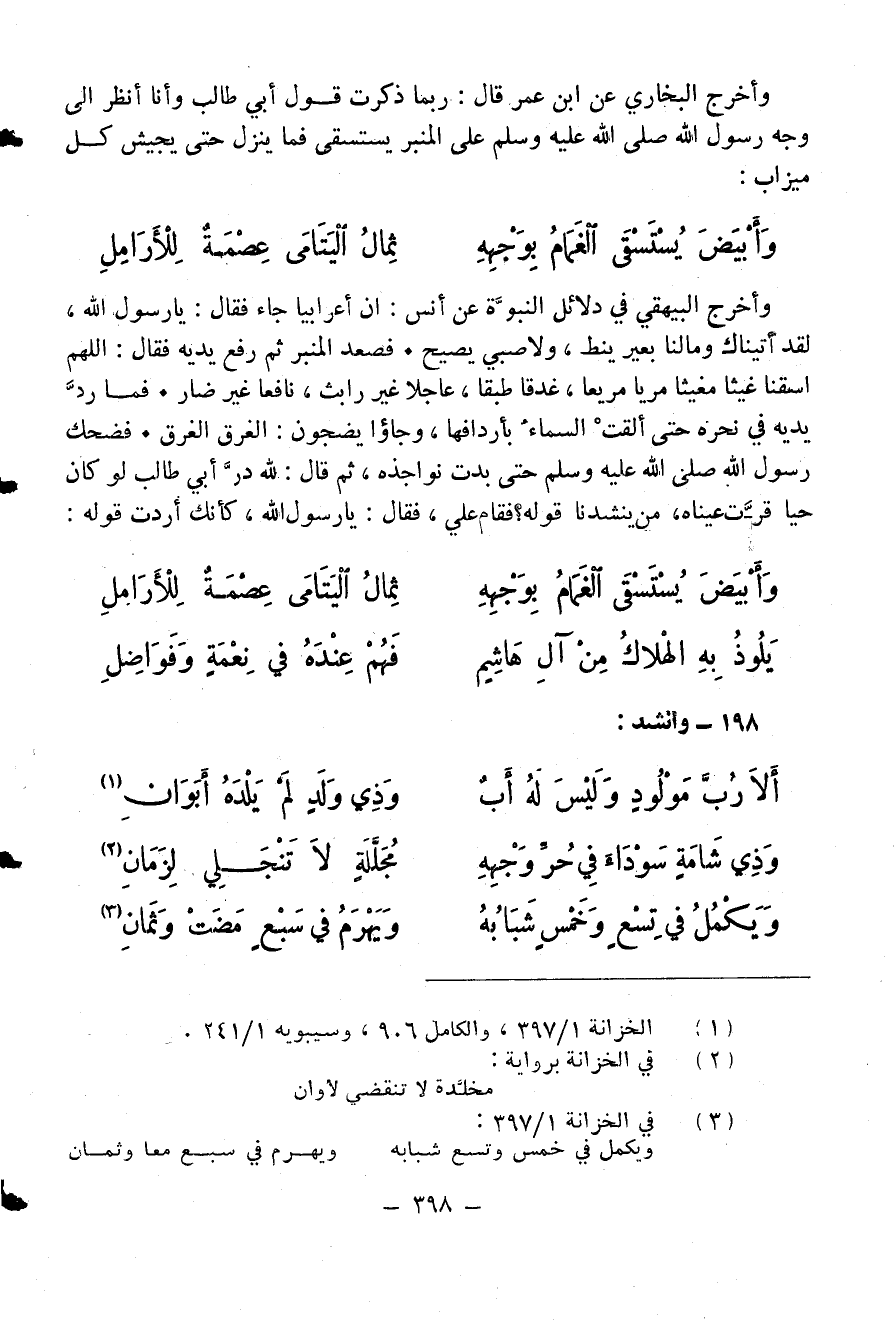 وأخرج البخاري عن ابن عمر قال : ربما ذكرت قـــول أبي طالب وأنا أنظر الى
وجه رسول الله صلى الله عليه وسلم على المنبر يستسقى فما ينزل حتى يجيش كـــل
ميزاب :
وَأَبْيَضَ يُسْتَسْقَى ٱلْغَمَامُ بِوَجْهِهِ ثِمَالُ ٱلْيَتَامَى عِصْمَةٌ لِلْأَرَامِلِ
وأخرج البيهقي في دلائل النبوَّة عن أنس : ان أعرابيا جاء فقال : يارسول الله ،
لقد أتيناك ومالنا بعير ينط ، ولاصبي يصيح • فصعد المنبر ثم رفع يديه فقال : اللهم
اسقنا غيثا مغيثا مريا مريعا ، غدقا طبقا ، عاجلا غير رابث ، نافعا غير ضار • فمـــا ردَّ
يديه في نحره حتى ألقتْ السماءُ بأردافها ، وجاؤا يضجون : الغرق الغرق • فضحك
رسول الله صلى الله عليه وسلم حتى بدت نواجذه ، ثم قال : لله درَّ أبي طالب لو كان
حيا قرَّت عيناه، من ينشدنا قوله؟ فقام علي ، فقال : يارسول الله ، كأنك أردت قوله :
وَأَبْيَضَ يُسْتَسْقَى ٱلْغَمَامُ بِوَجْهِهِ ثِمَالُ ٱلْيَتَامَى عِصْمَةٌ لِلْأَرَامِلِ
يَلُوذُ بِهِ الْهُلاكُ مِنْ آلِ هَاشِمٍ فَهُمْ عِنْدَهُ في نِعْمَةٍ وَفَوَاضِلِ
١٩٨ – وانشد :
أَلاَ رُبَّ مَوْلُودٍ وَلَيْسَ لَهُ أَبٌ وَذِي وَلَدٍ لَمْ يَلْدَهُ أَبَوَانِ (١)
وَذِي شَامَةٍ سَوْدَاءَ فِي حُرِّ وَجْهِهِ مُجَلَّلَةٍ لاَ تَنْجَـــلِي لِزَمَانِ (٢)
وَيَكْمُلُ فِي تِسْعٍ وَخَمْسٍ شَبَابُهُ وَيَهْرَمُ فِي سَبْعٍ مَضَتْ وَثَمَانِ (٣)
(١) الخزانة ٣٩٧/١ ، والكامل ٩٠٦ ، وسيبويه ٢٤١/١ .
(٢) في الخزانة برواية :
مخلـَّدة لا تنقضي لأوان
(٣) في الخزانة ٣٩٧/١ :
ويكمل في خمس وتسع شبابه ويهـــرم في سبـــع معا وثمـــان
– ٣٩٨ –